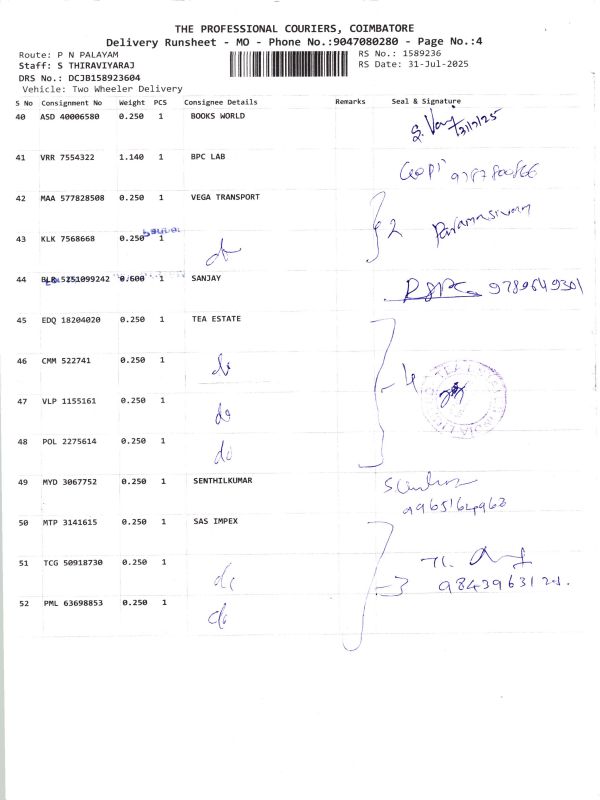 THE PROFESSIONAL COURIERS, COIMBATORE
Delivery Runsheet - MO - Phone No.:9047080280 - Page No.:4
Route: P N PALAYAM
RS No.: 1589236
Staff: S THIRAVIYARAJ
RS Date: 31-Jul-2025
DRS No.: DCJB158923604
Vehicle: Two Wheeler Delivery
S No Consignment No Weight PCS Consignee Details Remarks Seal & Signature
40 ASD 40006580 0.250 1 BOOKS WORLD
41 VRR 7554322 1.140 1 BPC LAB GOPI
42 MAA 577828508 0.250 1 VEGA TRANSPORT
2 Paramasivam
43 KLK 7568668 0.250 1 do
44 BLR 5251099242 0.600 1 SANJAY 9789649301
45 EDQ 18204020 0.250 1 TEA ESTATE
46 CMM 522741 0.250 1 do 4
47 VLP 1155161 0.250 1 do
48 POL 2275614 0.250 1 do
49 MYD 3067752 0.250 1 SENTHILKUMAR
9965164962
50 MTP 3141615 0.250 1 SAS IMPEX
51 TCG 50918730 0.250 1 do 3
52 PML 63698853 0.250 1 do